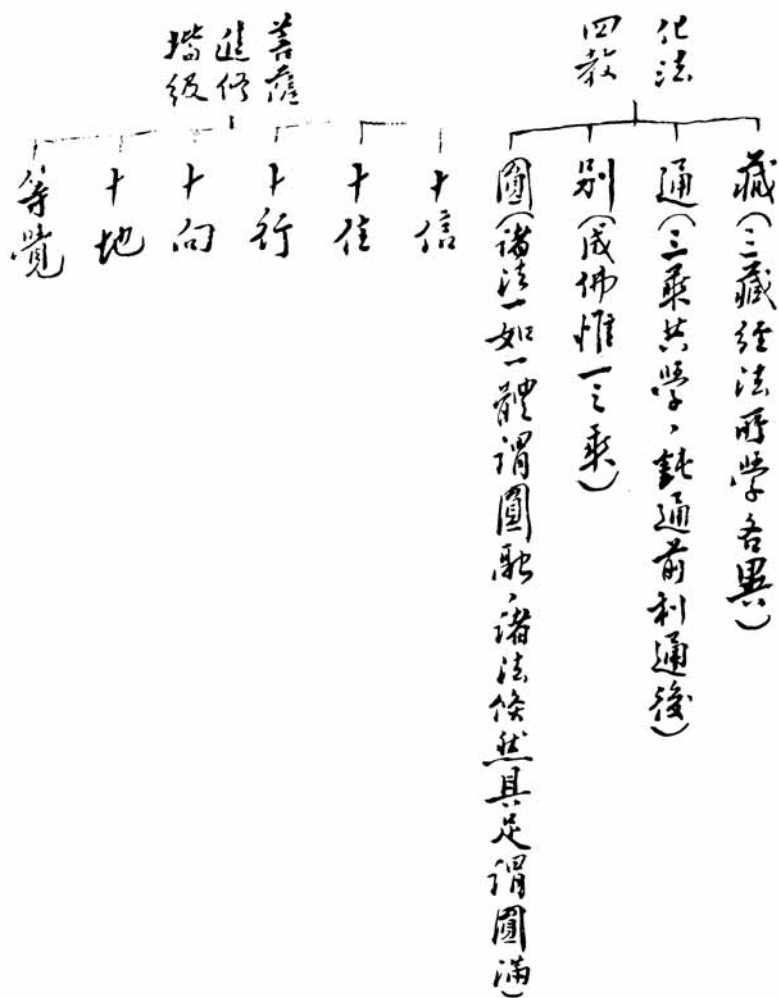 化法
四教
藏（三藏經法所學各異）
通（三乘共學、鈍通前利通後）
別（成佛惟一之乘）
圓（諸法一如一體謂圓融、諸法條然具足謂圓滿）
菩薩
進修
階級
十信
十住
十行
十向
十地
等覺